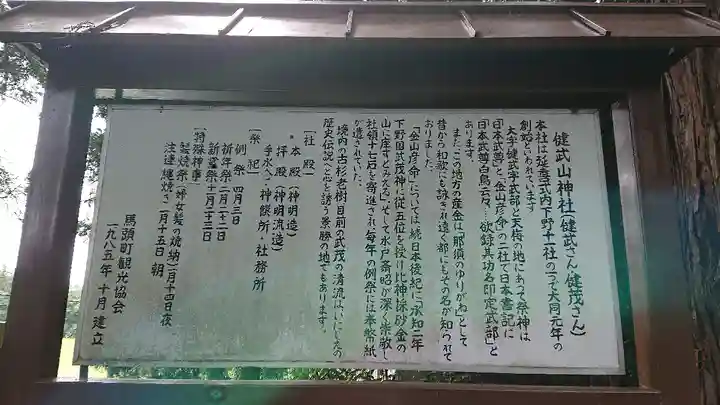 健武山神社（健武さん 健茂さん）
本社は延喜式内下野十二社の一つで大同元年の
創始といわれています
大字健武字武部と天椅の地にあって祭神は
「日本武尊」と、「金山彦命」の二社で日本書記に
「日本武尊白鳥云々…欲録其功名即定武部」と
あります。
また、この地方の産金は「那須のゆりがね」として
昔から和歌にも詠まれ遠く都にもその名が知られて
おりました。
「金山彦命」については続日本後紀に「承知二年
下野国武茂神に従五位を授けし神採砂金の
山に座す」とみえる。そして水戸斎昭が深く崇敬し
社領十七石を寄進され毎年の例祭には奉幣紙
が遺されていた。
境内の古杉老樹目前の武茂の清流はいにしえの
歴史伝説へと心を誘う景勝の地でもあります。
〔社殿〕
本殿（神明造）
拝殿（神明流造）
手水舎 神饌所 社務所
〔祭祀〕
例祭 四月三日
祈年祭 二月二十二日
新霊祭 十一月二十三日
〔特殊神事〕
髪焼祭（婦女髪の焼納）一月十四日夜
注連縄焼き 一月十五日 朝
馬頭町観光協会
一九八五年 十月 建立